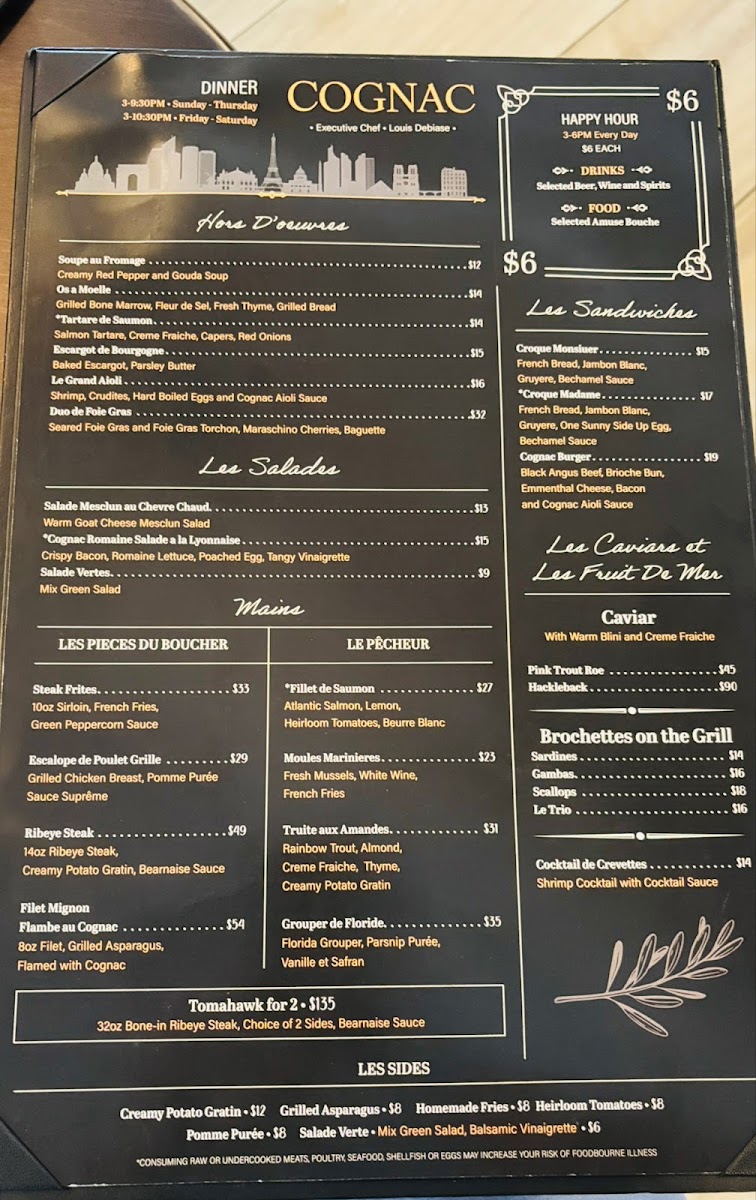 DINNER
3-9:30PM • Sunday - Thursday
3-10:30PM • Friday - Saturday
COGNAC
• Executive Chef • Louis Debiase •
$6
HAPPY HOUR
3-6PM Every Day
$6 EACH
DRINKS
Selected Beer, Wine and Spirits
FOOD
Selected Amuse Bouche
$6
Hors D'oeuvres
Soupe au Fromage $12
Creamy Red Pepper and Gouda Soup
Os a Moelle $14
Grilled Bone Marrow, Fleur de Sel, Fresh Thyme, Grilled Bread
*Tartare de Saumon $14
Salmon Tartare, Creme Fraiche, Capers, Red Onions
Escargot de Bourgogne $15
Baked Escargot, Parsley Butter
Le Grand Aioli $16
Shrimp, Crudites, Hard Boiled Eggs and Cognac Aioli Sauce
Duo de Foie Gras $32
Seared Foie Gras and Foie Gras Torchon, Maraschino Cherries, Baguette
Les Salades
Salade Mesclun au Chevre Chaud $13
Warm Goat Cheese Mesclun Salad
*Cognac Romaine Salade a la Lyonnaise $15
Crispy Bacon, Romaine Lettuce, Poached Egg, Tangy Vinaigrette
Salade Vertes $9
Mix Green Salad
Mains
LES PIECES DU BOUCHER
Steak Frites $33
10oz Sirloin, French Fries,
Green Peppercorn Sauce
Escalope de Poulet Grille $29
Grilled Chicken Breast, Pomme Purée
Sauce Suprême
Ribeye Steak $49
14oz Ribeye Steak,
Creamy Potato Gratin, Bearnaise Sauce
Filet Mignon
Flambe au Cognac $54
8oz Filet, Grilled Asparagus,
Flamed with Cognac
LE PÊCHEUR
*Fillet de Saumon $27
Atlantic Salmon, Lemon,
Heirloom Tomatoes, Beurre Blanc
Moules Marinieres $23
Fresh Mussels, White Wine,
French Fries
Truite aux Amandes $31
Rainbow Trout, Almond,
Creme Fraiche, Thyme,
Creamy Potato Gratin
Grouper de Floride $35
Florida Grouper, Parsnip Purée,
Vanille et Safran
Tomahawk for 2 • $135
32oz Bone-in Ribeye Steak, Choice of 2 Sides, Bearnaise Sauce
Les Sandwiches
Croque Monsiuer $15
French Bread, Jambon Blanc,
Gruyere, Bechamel Sauce
*Croque Madame $17
French Bread, Jambon Blanc,
Gruyere, One Sunny Side Up Egg,
Bechamel Sauce
Cognac Burger $19
Black Angus Beef, Brioche Bun,
Emmenthal Cheese, Bacon
and Cognac Aioli Sauce
Les Caviars et
Les Fruit De Mer
Caviar
With Warm Blini and Creme Fraiche
Pink Trout Roe $45
Hackleback $90
Brochettes on the Grill
Sardines $14
Gambas $16
Scallops $18
Le Trio $16
Cocktail de Crevettes $14
Shrimp Cocktail with Cocktail Sauce
LES SIDES
Creamy Potato Gratin • $12 Grilled Asparagus • $8 Homemade Fries • $8 Heirloom Tomatoes • $8
Pomme Purée • $8 Salade Verte • Mix Green Salad, Balsamic Vinaigrette • $6
*CONSUMING RAW OR UNDERCOOKED MEATS, POULTRY, SEAFOOD, SHELLFISH OR EGGS MAY INCREASE YOUR RISK OF FOODBOURNE ILLNESS